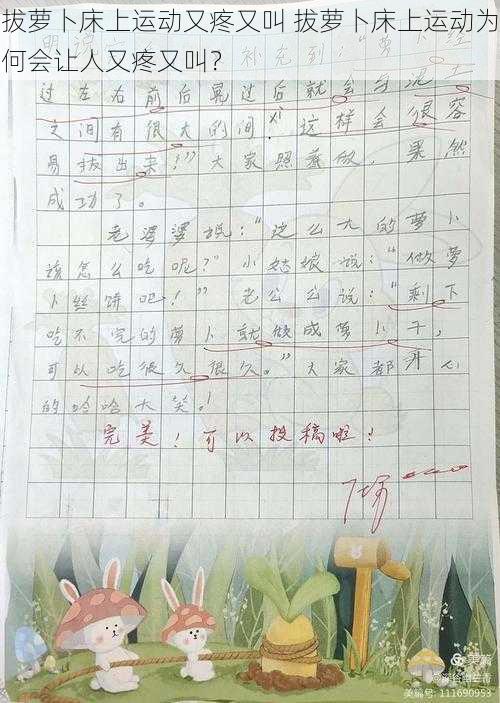 拔萝卜床上运动又疼又叫 拔萝卜床上运动为
何会让人又疼又叫？
补充到：“萝卜经
过左右前后晃过后就会与泥土
之间有很大的间，这样会很容
易拔出来！”大家照着做，果然
成功了。
老婆婆说：“这么大的萝卜
该怎么吃呢？”小姑娘说：“做萝
卜丝饼吧！”老公公说：“剩下
吃不完的萝卜就做成萝卜干，
可以吃很久很久。”大家都开心
的哈哈大笑。
完美！可以投稿啦！
美篇
@深谷幽兰香
美编号: 111690953